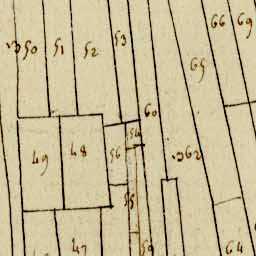 66 69
50 51 52 53
65
60
54
49 48 56 62
55
47 59 64